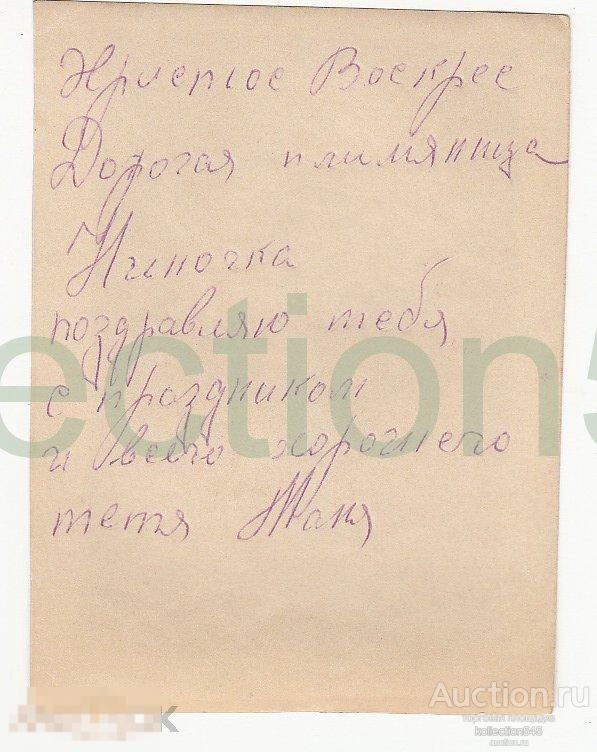 Христос Воскрес
Дорогая плимяница
Ниночка
поздравляю тебя
с праздником
и всего хорошего
тетя Таня
ection5
Auction.ru
торговая площадка
kollection545
auction.ru